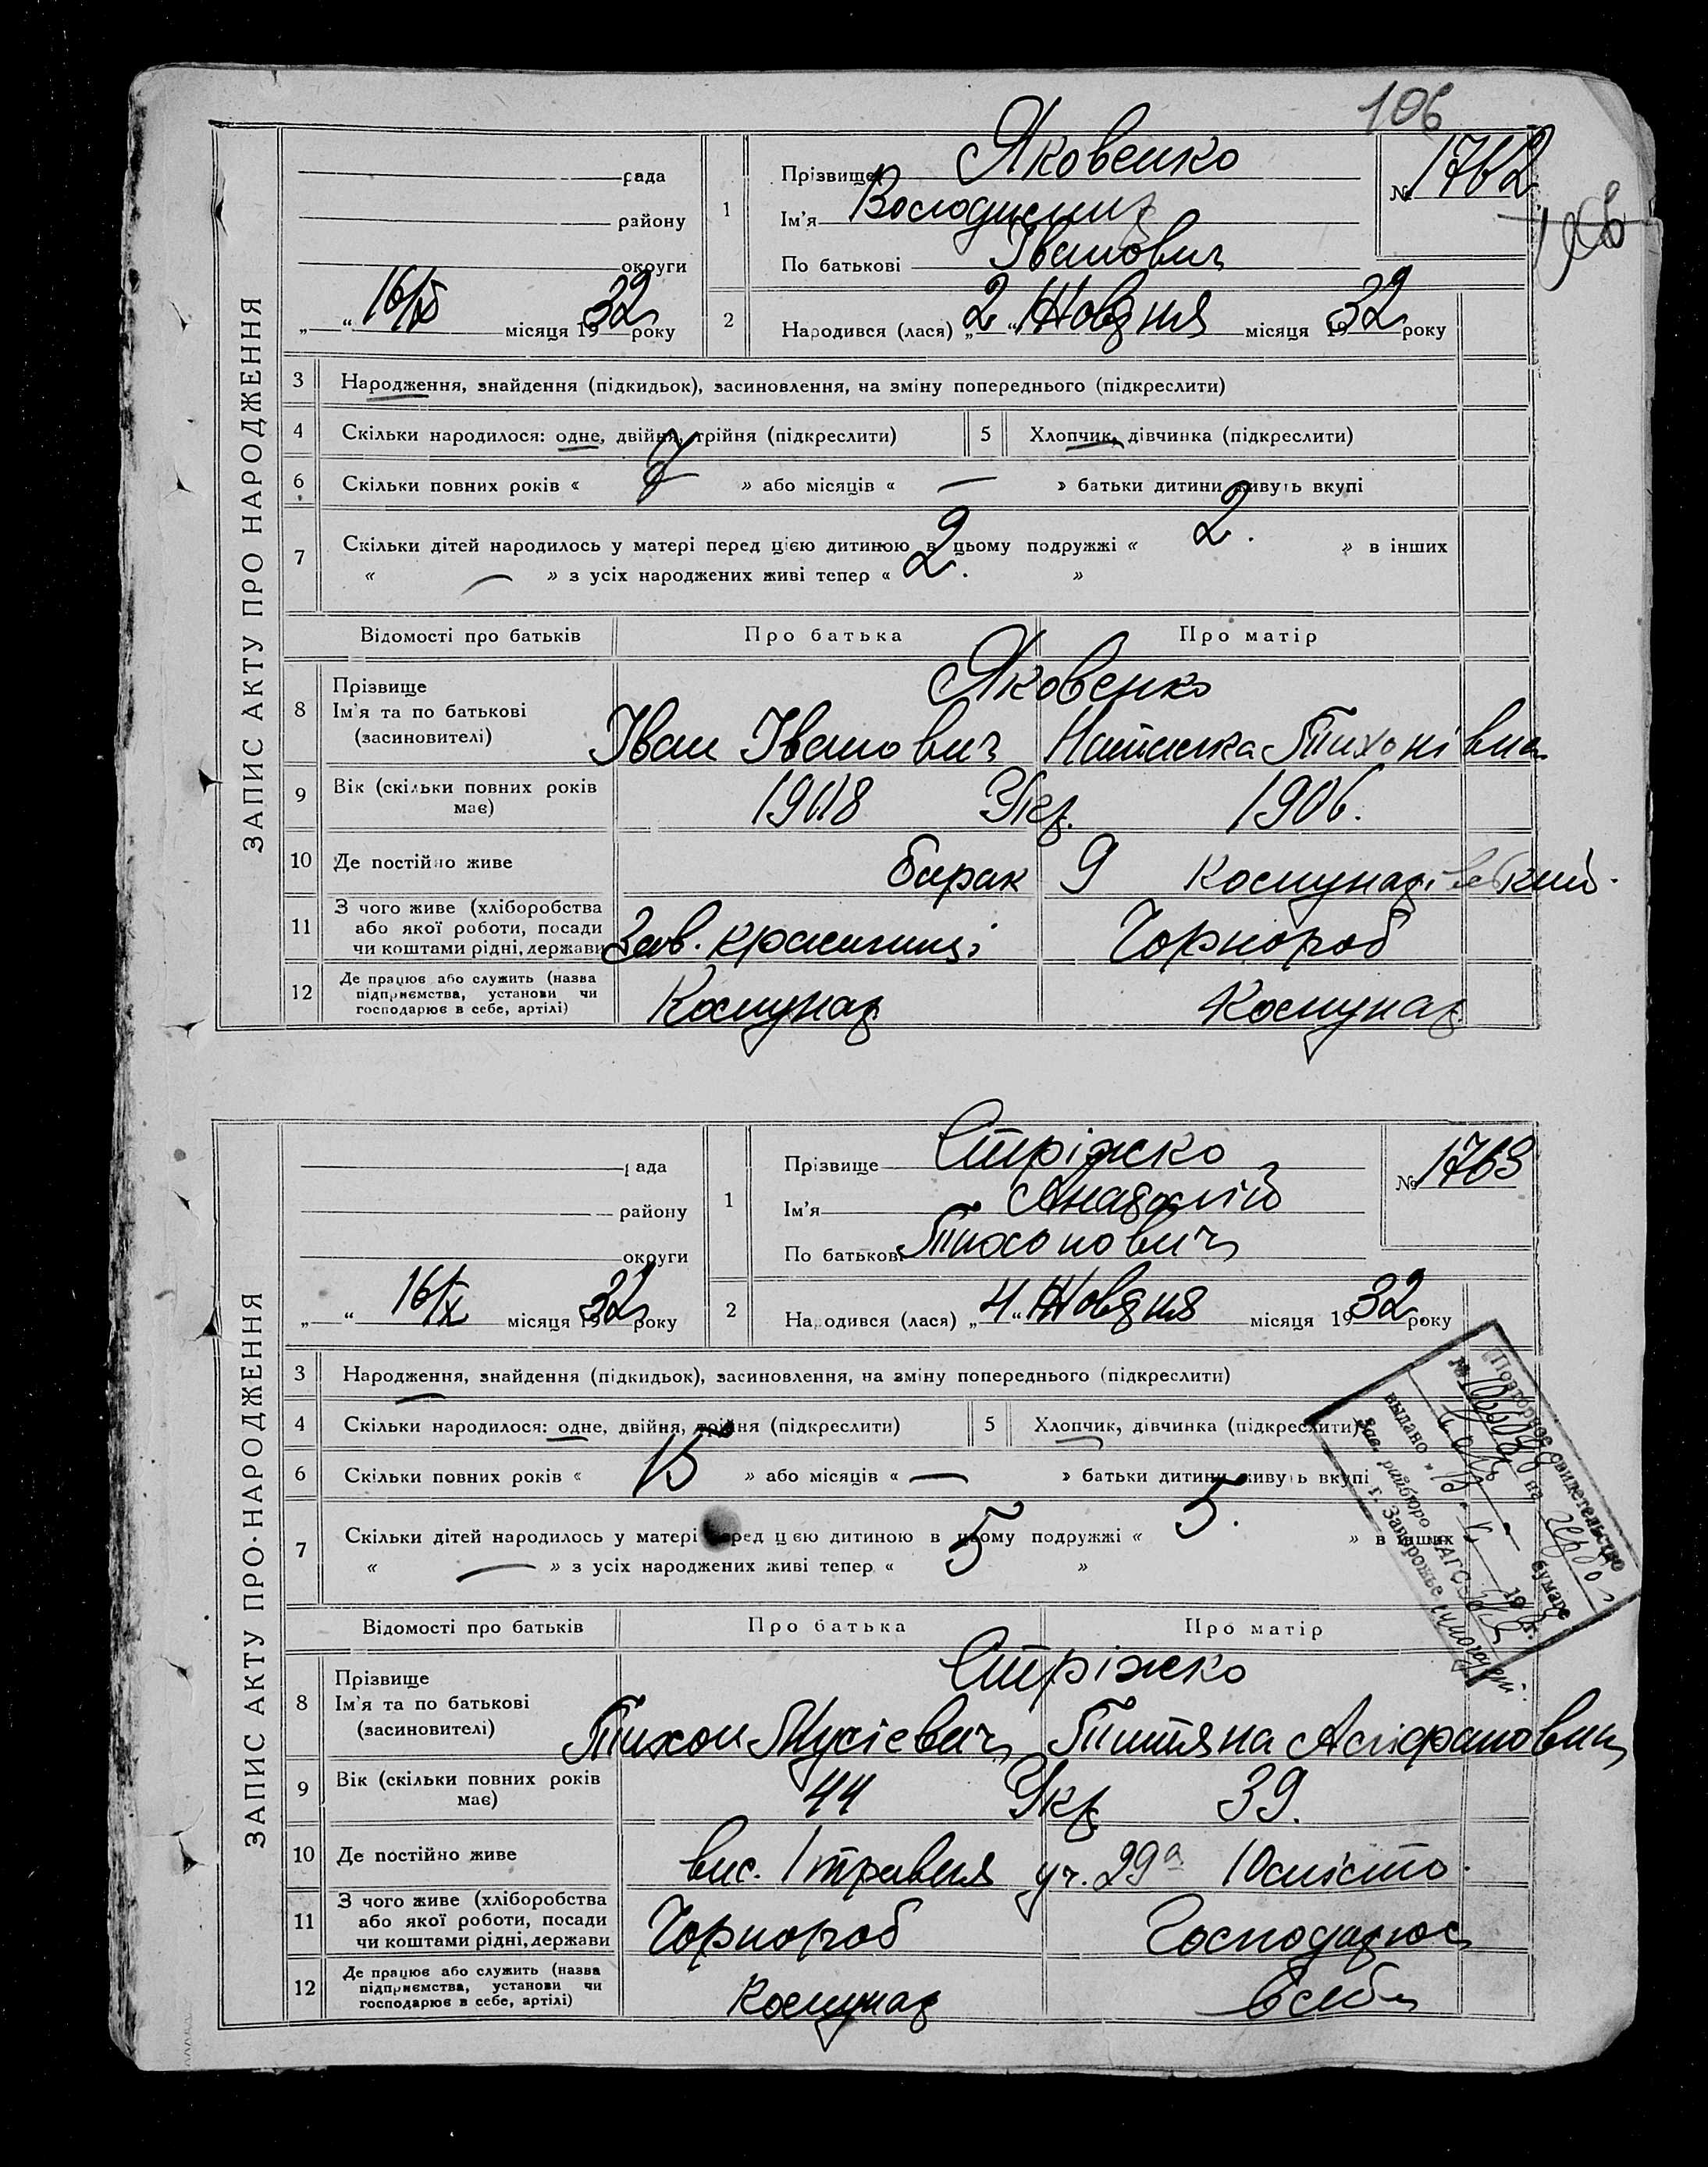 106
ЗАПИС АКТУ ПРО НАРОДЖЕННЯ
рада
району
округи
„ “ 16/X місяця 1932 року
1
Прізвище Яковенко
Ім'я Володимир
По батькові Іванович
№ 1762
2
Народився (лася) „2“ Жовтня місяця 1932 року
3 Народження, знайдення (підкидьок), засиновлення, на зміну попереднього (підкреслити)
4 Скільки народилося: одне, двійня, трійня (підкреслити)
5 Хлопчик, дівчинка (підкреслити)
6 Скільки повних років « 7 » або місяців « — » батьки дитини живуть вкупі
7 Скільки дітей народилось у матері перед цією дитиною в цьому подружжі « 2. » в інших
« — » з усіх народжених живі тепер « 2. »
Відомості про батьків Про батька Про матір
8 Прізвище
Ім'я та по батькові
(засиновителі)
Яковенко
Іван Іванович Наталка Тихонівна
9 Вік (скільки повних років має)
1908 Укр. 1906.
10 Де постійно живе
барак 9
11 З чого живе (хліборобства
або якої роботи, посади
чи коштами рідні, держави
Зав. крамниці Чорнороб
12 Де працює або служить (назва
підприємства, установи чи
господарює в себе, артілі)
Комунар Комунар
ЗАПИС АКТУ ПРО НАРОДЖЕННЯ
рада
району
округи
„ “ 16/X місяця 1932 року
1
Прізвище Стріжко
Ім'я Анатолій
По батькові Тихонович
№ 1763
2
Народився (лася) „4“ Жовтня місяця 1932 року
3 Народження, знайдення (підкидьок), засиновлення, на зміну попереднього (підкреслити)
4 Скільки народилося: одне, двійня, трійня (підкреслити)
5 Хлопчик, дівчинка (підкреслити)
6 Скільки повних років « 15 » або місяців « — » батьки дитини живуть вкупі
7 Скільки дітей народилось у матері перед цією дитиною в цьому подружжі « 5. » в інших
« — » з усіх народжених живі тепер « 5 »
Повторное свидетельство
№ на бумаге
выдано
Зав. райбюро ЗАГС
г. Запорожье
Відомості про батьків Про батька Про матір
8 Прізвище
Ім'я та по батькові
(засиновителі)
Стріжко
Тихон Тетяна
9 Вік (скільки повних років має)
44 Укр. 39.
10 Де постійно живе
вис. 1 травня уч. 29а
11 З чого живе (хліборобства
або якої роботи, посади
чи коштами рідні, держави
Чорнороб Господарює
12 Де працює або служить (назва
підприємства, установи чи
господарює в себе, артілі)
Комунар в себе